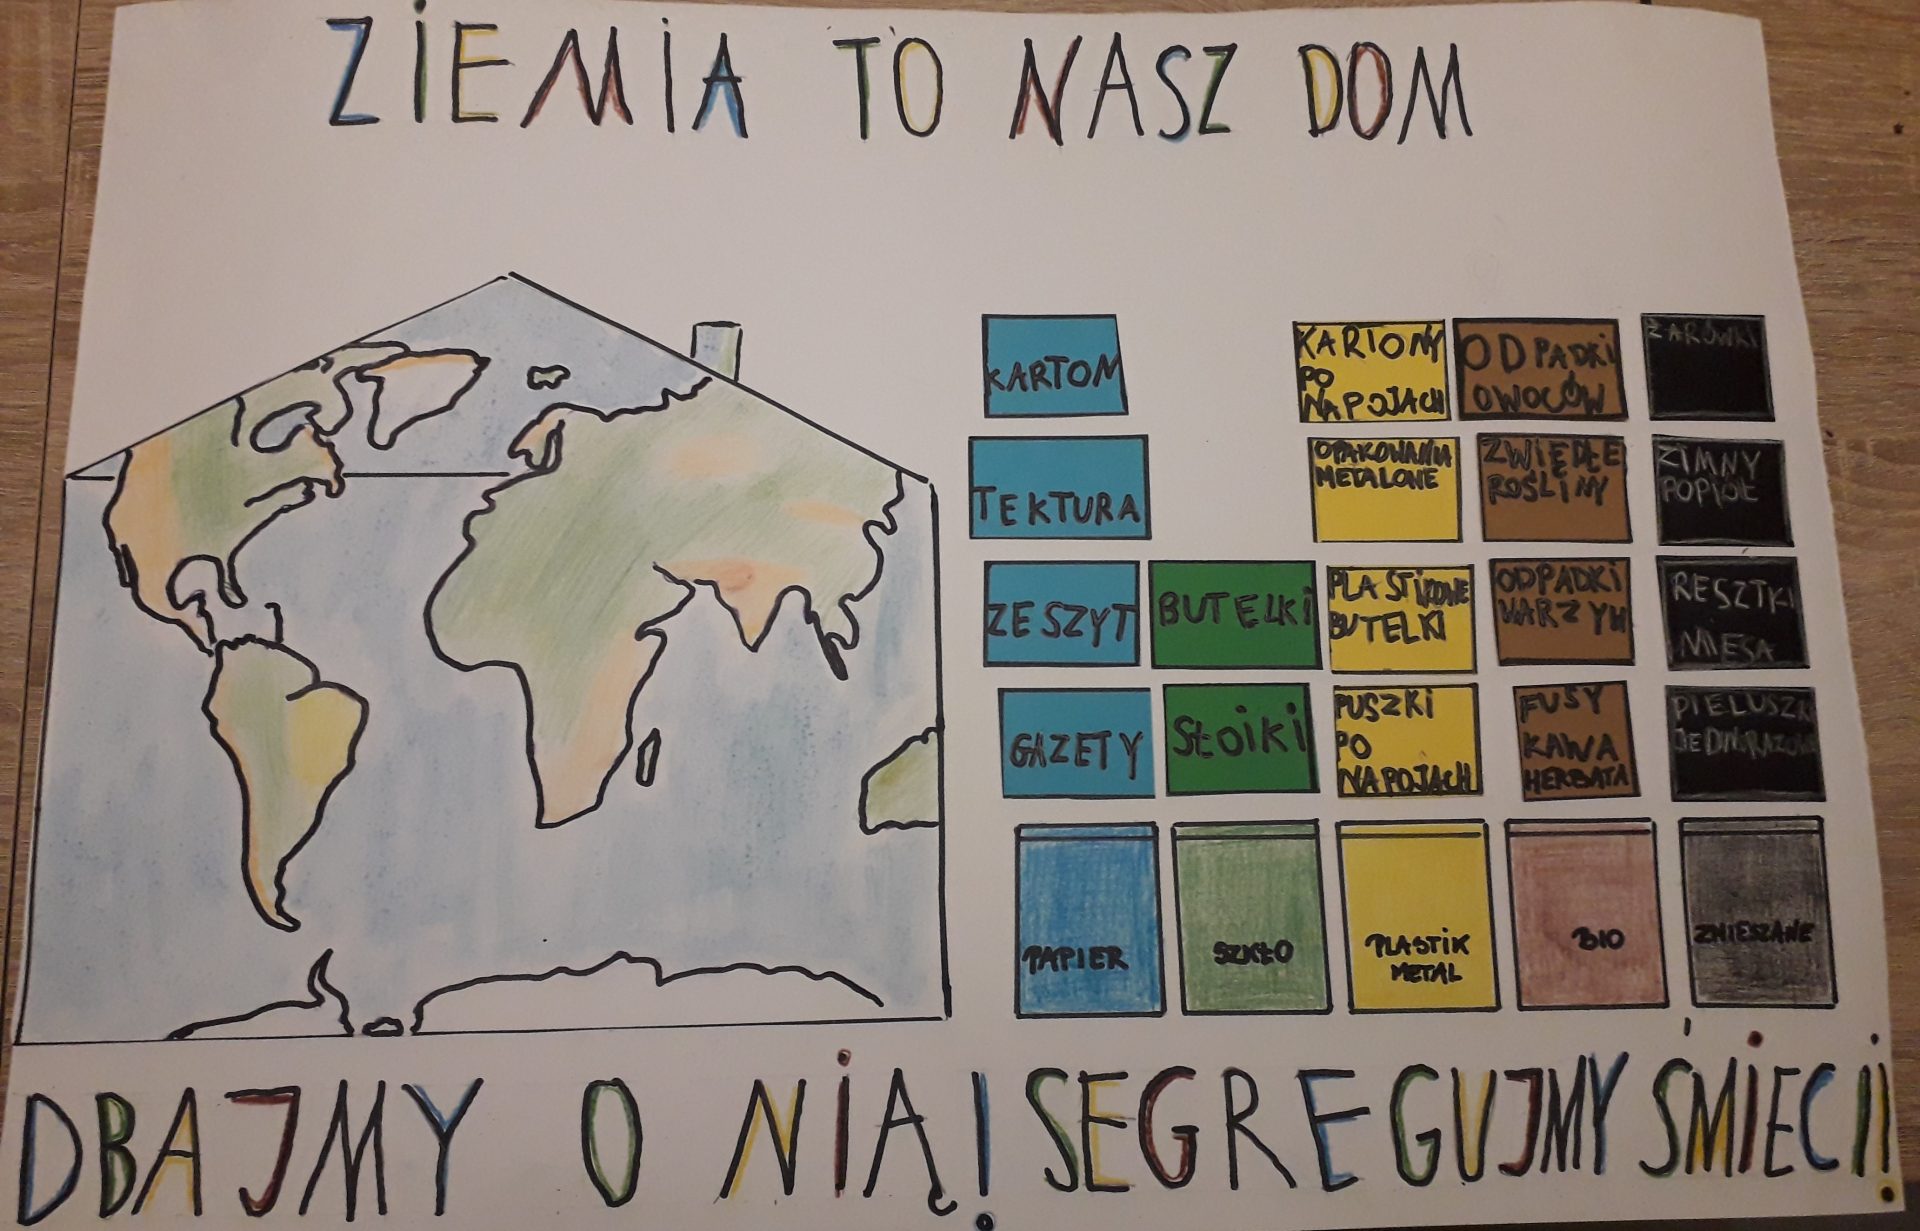 ZIEMIA TO NASZ DOM
KARTOM
KARTONY
PO
NAPOJACH
ODPADKI
OWOCÓW
ŻARÓWKI
TEKTURA
OPAKOWANIA
METALONE
ZWIĘDŁE
ROŚLINY
ZIMNY
POPIÓŁ
ZESZYT
BUTELKI
PLASTIKOWE
BUTELKI
ODPADKI
WARZYW
RESZTKI
MIĘSA
GAZETY
SŁOIKI
PUSZKI
PO
NAPOJACH
FUSY
KAWA
HERBATA
PIELUSZKI
JEDNORAZOWE
PAPIER
SZKŁO
PLASTIK
METAL
BIO
ZMIESZANE
DBAJMY O NIĄ! SEGREGUJMY ŚMIECI!